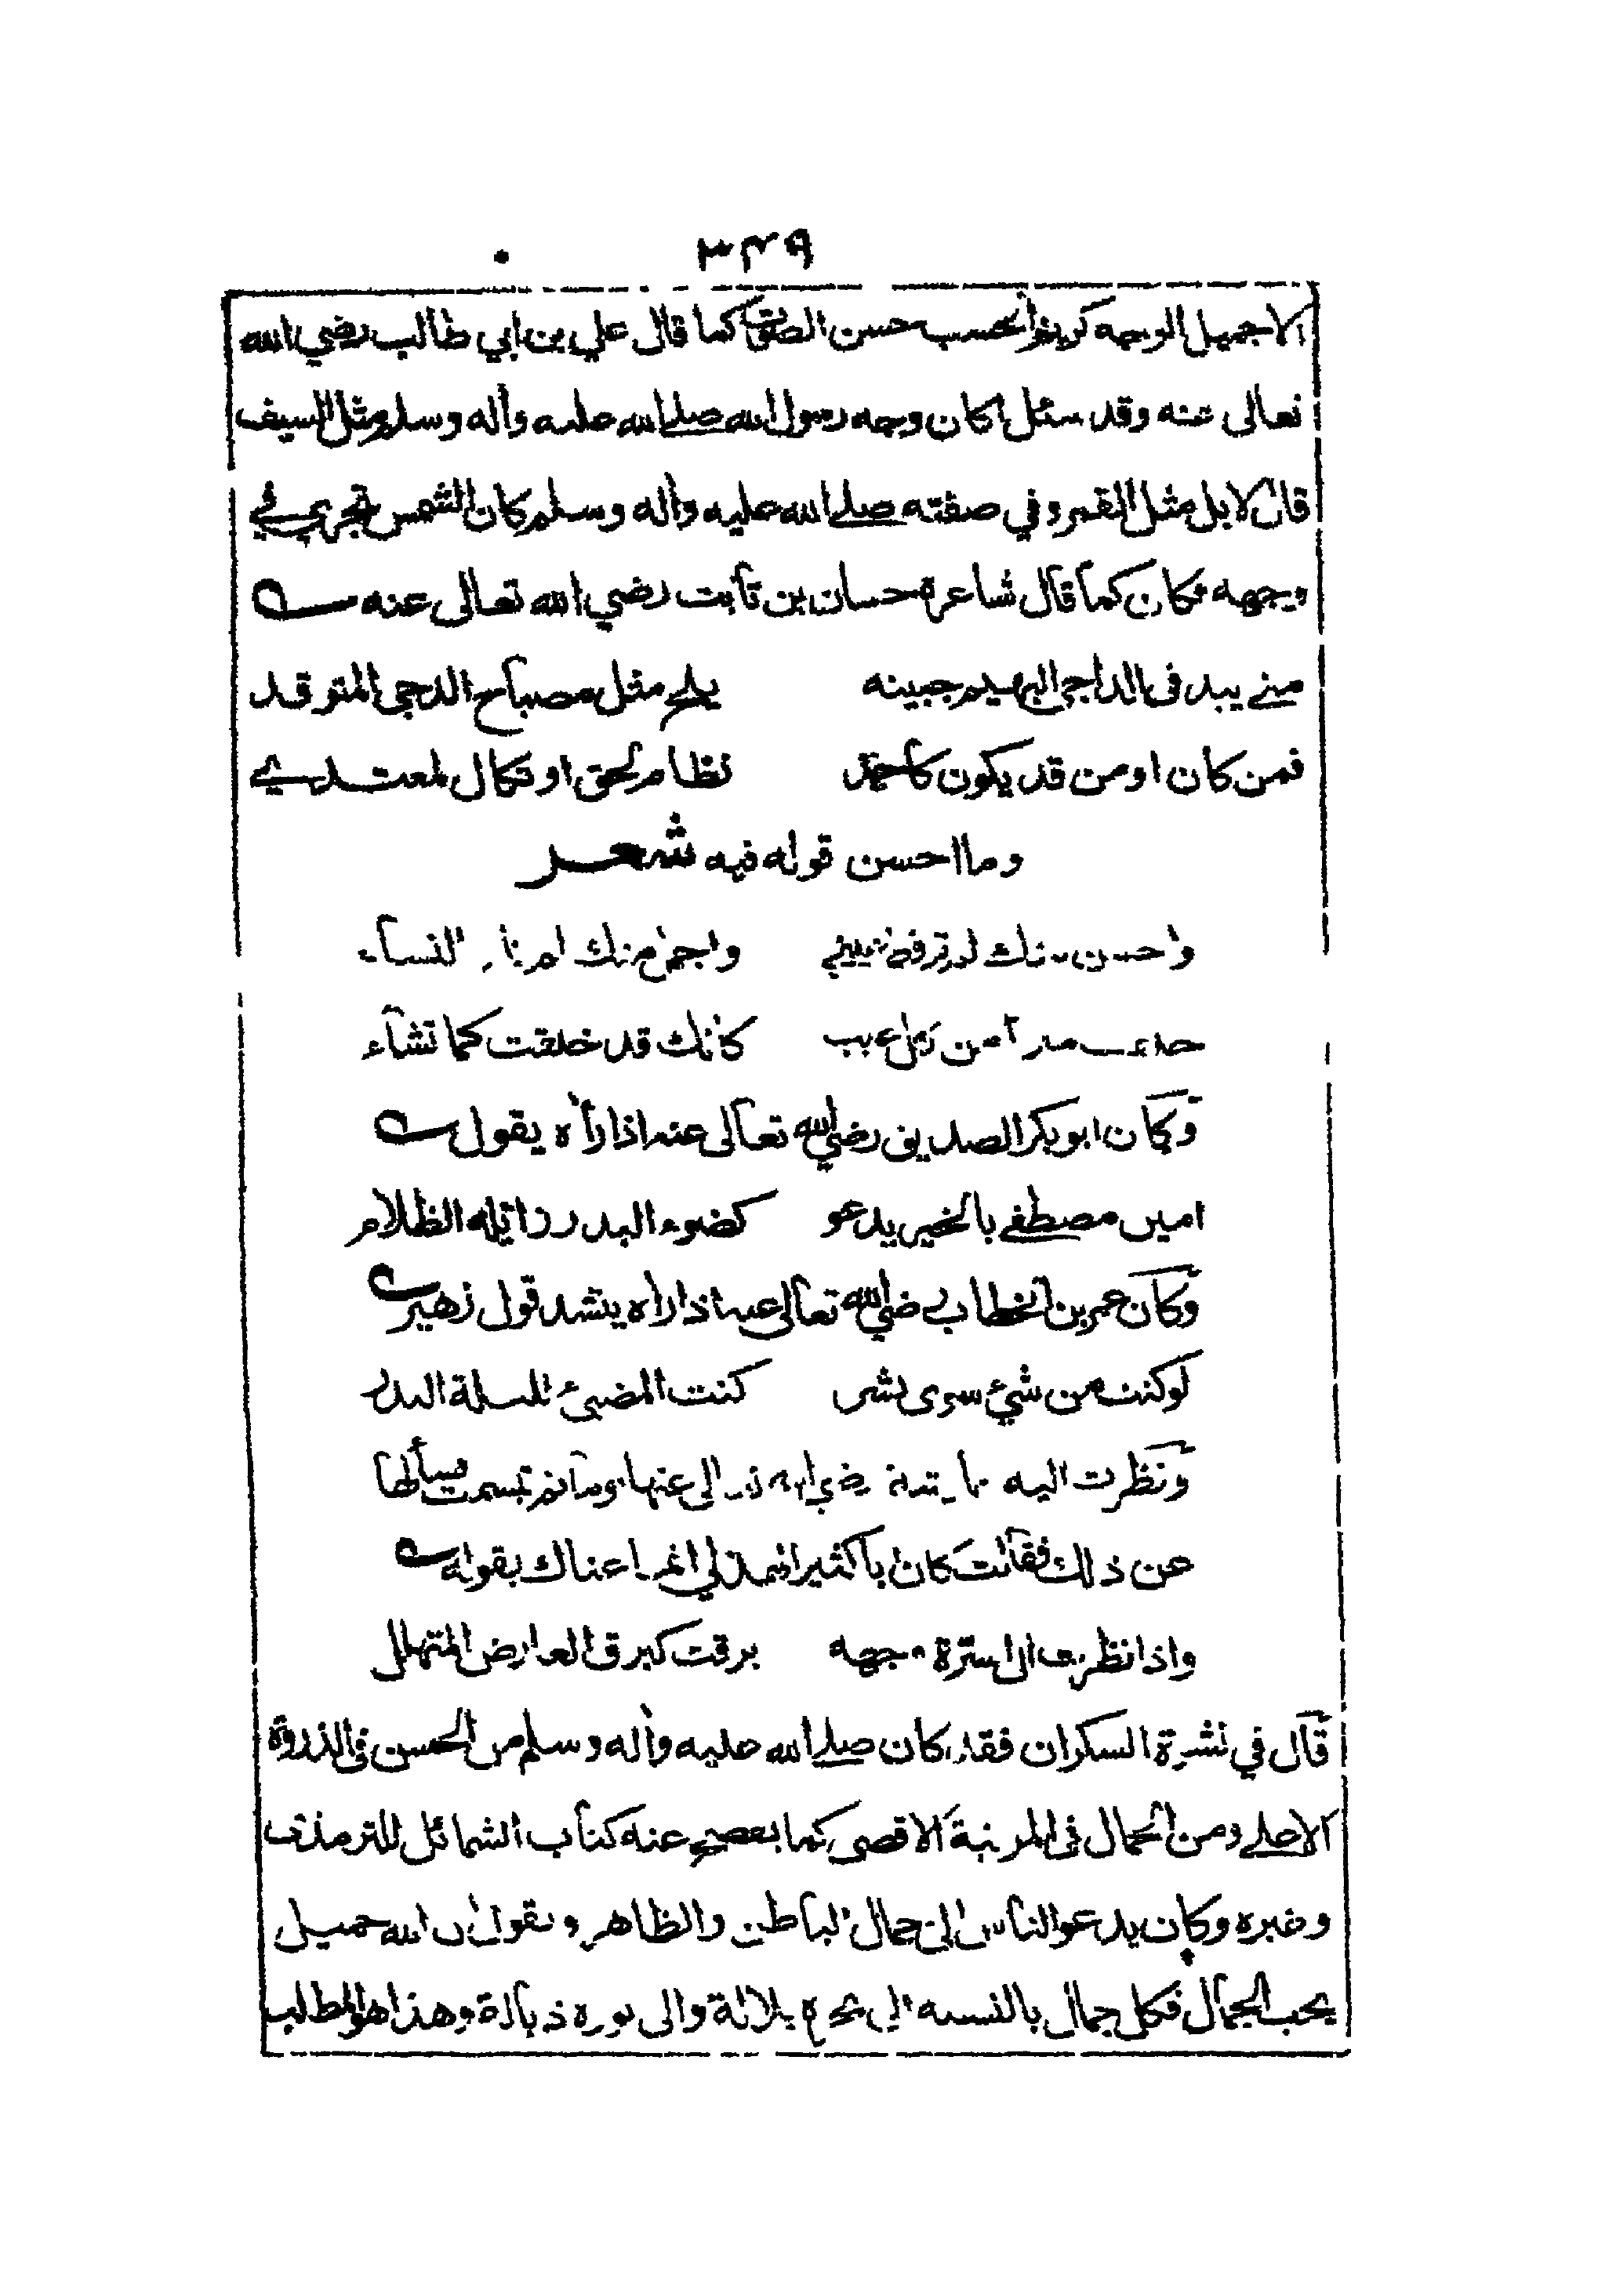 ٣٤٩
الا جميل الوجه كريم الحسب حسن الصوت كما قال علي بن ابي طالب رضي الله
تعالى عنه وقد سئل اكان وجه رسول الله صلى الله عليه وأله وسلم مثل السيف
قال لا بل مثل القمر وفي صفته صلى الله عليه وأله وسلم كان الشمس تجري في
وجهه فكان كما قال شاعره حسان بن ثابت رضي الله تعالى عنه
متى يبد في الداجي البهيم جبينه يلح مثل مصباح الدجى المتوقد
فمن كان او من قد يكون كاحمد نظام لحق او نكال لمعتدي
وما احسن قوله فيه شعر
واحسن منك لم تر قط عيني واجمل منك لم تلد النساء
خلقت مبرأ من كل عيب كأنك قد خلقت كما تشاء
وكان ابو بكر الصديق رضي الله تعالى عنه اذا رأه يقول
امين مصطفى بالخير يدعو كضوء البدر زايله الظلام
وكان عمر بن الخطاب رضي الله تعالى عنه اذا راه ينشد قول زهير
لو كنت من شيء سوى بشر كنت المضيء لليلة البدر
ونظرت اليه عايشة رضي الله تعالى عنها يوما ثم تبسمت فسألها
عن ذلك فقالت كان ابا كثير الهذلي انما عناك بقوله
واذا نظرت الى اسرة وجهه برقت كبرق العارض المتهلل
قال في نشرة السكران فقد كان صلى الله عليه وأله وسلم من الحسن في الذروة
الاعلى ومن الجمال في المرتبة الاقصى كما يفصح عنه كتاب الشمائل للترمذي
وغيره وكان يدعو الناس الى جمال الباطن والظاهر ويقول ان الله جميل
يحب الجمال فكل جمال بالنسبة الى بلالة والى نوره ذبالة وهذا هو المطلب